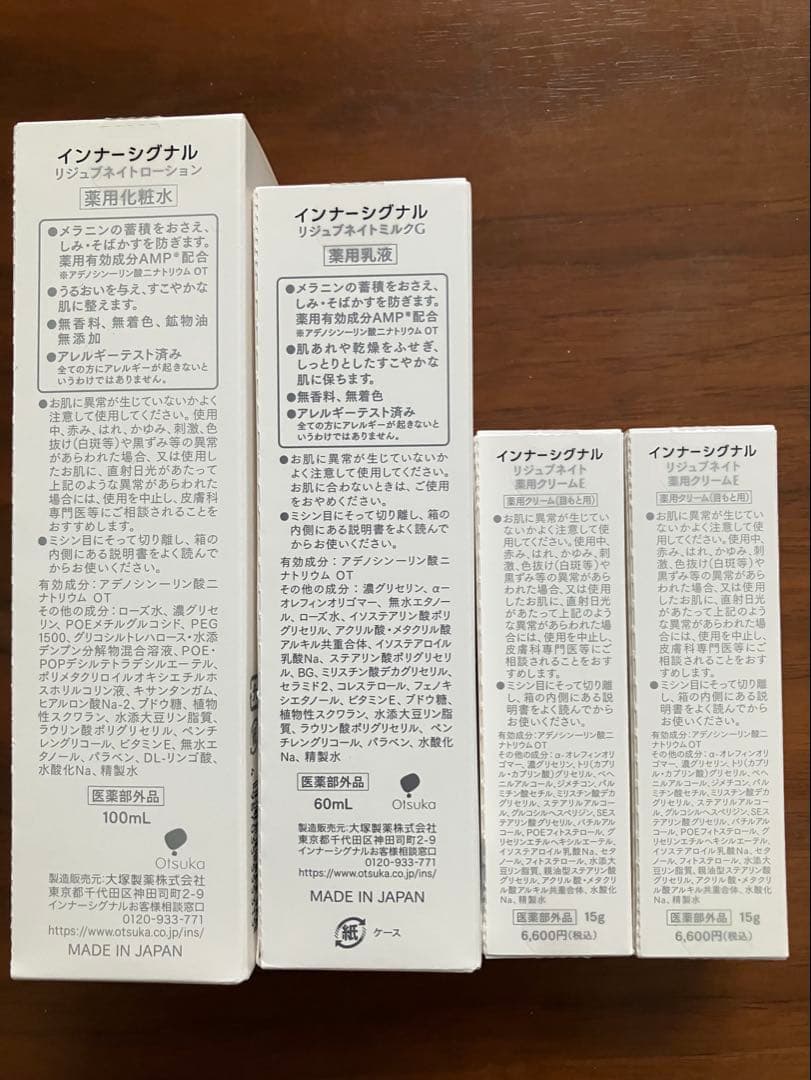 インナーシグナル
リジュブネイトローション
薬用化粧水
●メラニンの蓄積をおさえ、
しみ・そばかすを防ぎます。
薬用有効成分AMP※配合
※アデノシン一リン酸二ナトリウム OT
●うるおいを与え、すこやかな
肌に整えます。
●無香料、無着色、鉱物油
無添加
●アレルギーテスト済み
全ての方にアレルギーが起きないと
いうわけではありません。
●お肌に異常が生じていないかよく
注意して使用してください。使用
中、赤み、はれ、かゆみ、刺激、色
抜け(白斑等)や黒ずみ等の異常
があらわれた場合、又は使用し
たお肌に、直射日光があたって
上記のような異常があらわれた
場合には、使用を中止し、皮膚科
専門医等にご相談されることを
おすすめします。
●ミシン目にそって切り離し、箱の
内側にある説明書をよく読んで
からお使いください。
有効成分：アデノシン一リン酸二
ナトリウム OT
その他の成分：ローズ水、濃グリセ
リン、POEメチルグルコシド、PEG
1500、グリコシルトレハロース・水添
デンプン分解物混合溶液、POE・
POPデシルテトラデシルエーテル、
ポリメタクリロイルオキシエチルホ
スホリルコリン液、キサンタンガム、
ヒアルロン酸Na-2、ブドウ糖、植物
性スクワラン、水添大豆リン脂質、
ラウリン酸ポリグリセリル、ペンチ
レングリコール、ビタミンE、無水エ
タノール、パラベン、DL-リンゴ酸、
水酸化Na、精製水
医薬部外品
100mL
Otsuka
製造販売元：大塚製薬株式会社
東京都千代田区神田司町2-9
インナーシグナルお客様相談窓口
0120-933-771
https://www.otsuka.co.jp/ins/
MADE IN JAPAN
インナーシグナル
リジュブネイトミルクG
薬用乳液
●メラニンの蓄積をおさえ、
しみ・そばかすを防ぎます。
薬用有効成分AMP※配合
※アデノシン一リン酸二ナトリウム OT
●肌あれや乾燥をふせぎ、
しっとりとしたすこやかな
肌に保ちます。
●無香料、無着色
●アレルギーテスト済み
全ての方にアレルギーが起きないと
いうわけではありません。
●お肌に異常が生じていないか
よく注意して使用してください。
お肌に合わないときは、ご使用
をおやめください。
●ミシン目にそって切り離し、箱の
内側にある説明書をよく読んで
からお使いください。
有効成分：アデノシン一リン酸二
ナトリウム OT
その他の成分：濃グリセリン、α-
オレフィンオリゴマー、無水エタノ
ール、ローズ水、イソステアリン酸ポリ
グリセリル、アクリル酸・メタクリル酸
アルキル共重合体、イソステアロイル
乳酸Na、ステアリン酸ポリグリセ
リル、BG、ミリスチン酸デカグリセリル、
セラミド2、コレステロール、フェノキ
シエタノール、ビタミンE、ブドウ糖、
植物性スクワラン、水添大豆リン脂
質、ラウリン酸ポリグリセリル、ペン
チレングリコール、パラベン、水酸化
Na、精製水
医薬部外品
60mL
Otsuka
製造販売元：大塚製薬株式会社
東京都千代田区神田司町2-9
インナーシグナルお客様相談窓口
0120-933-771
https://www.otsuka.co.jp/ins/
MADE IN JAPAN
紙 ケース
インナーシグナル
リジュブネイト
薬用クリームE
薬用クリーム(目もと用)
●お肌に異常が生じてい
ないかよく注意して使
用してください。使用中、
赤み、はれ、かゆみ、刺
激、色抜け(白斑等)や
黒ずみ等の異常があら
われた場合、又は使用
したお肌に、直射日光
があたって上記のよう
な異常があらわれた場
合には、使用を中止し、
皮膚科専門医等にご
相談されることをおす
すめします。
●ミシン目にそって切り離
し、箱の内側にある説明
書をよく読んでから
お使いください。
有効成分：アデノシン一リン酸二
ナトリウム OT
その他の成分：α-オレフィンオリ
ゴマー、濃グリセリン、トリ(カプリ
ル・カプリン酸)グリセリル、ベヘ
ニルアルコール、ジメチコン、パル
ミチン酸セチル、ミリスチン酸デカ
グリセリル、ステアリルアルコー
ル、グルコシルヘスペリジン、SEス
テアリン酸グリセリル、バチルアル
コール、POEフィトステロール、グ
リセリンエチルヘキシルエーテル、
イソステアロイル乳酸Na、セタ
ノール、フィトステロール、水添大
豆リン脂質、親油型ステアリン酸
グリセリル、アクリル酸・メタクリ
ル酸アルキル共重合体、水酸化
Na、精製水
医薬部外品 15g
6,600円(税込)
インナーシグナル
リジュブネイト
薬用クリームE
薬用クリーム(目もと用)
●お肌に異常が生じてい
ないかよく注意して使
用してください。使用中、
赤み、はれ、かゆみ、刺
激、色抜け(白斑等)や
黒ずみ等の異常があら
われた場合、又は使用
したお肌に、直射日光
があたって上記のよう
な異常があらわれた場
合には、使用を中止し、
皮膚科専門医等にご
相談されることをおす
すめします。
●ミシン目にそって切り離
し、箱の内側にある説明
書をよく読んでから
お使いください。
有効成分：アデノシン一リン酸二
ナトリウム OT
その他の成分：α-オレフィンオリ
ゴマー、濃グリセリン、トリ(カプリ
ル・カプリン酸)グリセリル、ベヘ
ニルアルコール、ジメチコン、パル
ミチン酸セチル、ミリスチン酸デカ
グリセリル、ステアリルアルコー
ル、グルコシルヘスペリジン、SEス
テアリン酸グリセリル、バチルアル
コール、POEフィトステロール、グ
リセリンエチルヘキシルエーテル、
イソステアロイル乳酸Na、セタ
ノール、フィトステロール、水添大
豆リン脂質、親油型ステアリン酸
グリセリル、アクリル酸・メタクリ
ル酸アルキル共重合体、水酸化
Na、精製水
医薬部外品 15g
6,600円(税込)